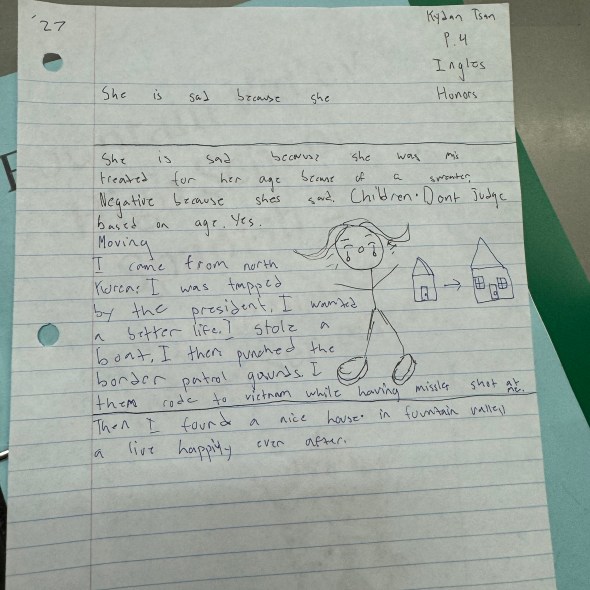 '27
Kydan Tsan
P.4
Ingles
Honors
She is sad because she
She is sad because she was mis
treated for her age because of a sweater.
Negative because shes sad. Children. Dont judge
based on age. Yes.
Moving
I came from north
Korea. I was trapped
by the president. I wanted
a better life. I stole a
boat, I then punched the
border patrol gaurds. I
them rode to vietnam while having missle shot at me.
Then I found a nice house in fountain valley
a live happily ever after.